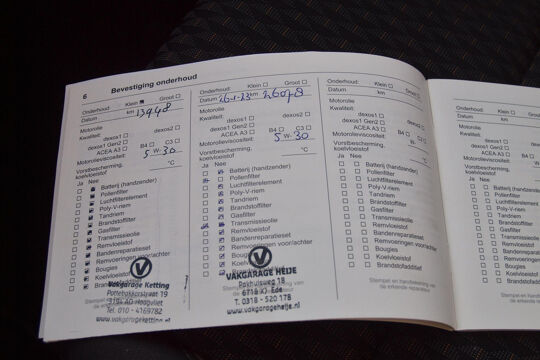 6 Bevestiging onderhoud
Onderhoud: Klein Groot
Datum km 13948
Motorolie
Kwaliteit:
dexos1 dexos2
dexos1 Gen2 B4 C3
ACEA A3
Motorolieviscositeit: 5 W- 30
Vorstbescherming, koelvloeistof °C
Ja Nee
Batterij (handzender)
Pollenfilter
Luchtfilterelement
Poly-V-riem
Tandriem
Brandstoffilter
Gasfilter
Transmissieolie
Remvloeistof
Bandenreparatieset
Remvoeringen voor/achter
Bougies
Koelvloeistof
Vakgarage Ketting
Tel. 010 - 4169782
www.vakgarageketting.nl
Onderhoud: Klein Groot
Datum km 26078
Motorolie
Kwaliteit:
dexos1 dexos2
dexos1 Gen2
ACEA A3 B4 C3
Motorolieviscositeit: 5 W- 30
Vorstbescherming, koelvloeistof °C
Ja Nee
Batterij (handzender)
Pollenfilter
Luchtfilterelement
Poly-V-riem
Tandriem
Brandstoffilter
Gasfilter
Transmissieolie
Remvloeistof
Bandenreparatieset
Remvoeringen voor/achter
Bougies
Koelvloeistof
VAKGARAGE HEIJE
Pakhuisweg 18
Ede
T. 0318 - 520 178
www.vakgarageheije.nl
Onderhoud: Klein Groot
Datum km
Motorolie
Kwaliteit:
dexos1 dexos2
dexos1 Gen2
ACEA A3 B4 C3
Motorolieviscositeit: W-
Vorstbescherming, koelvloeistof °C
Ja Nee
Batterij (handzender)
Pollenfilter
Luchtfilterelement
Poly-V-riem
Tandriem
Brandstoffilter
Gasfilter
Transmissieolie
Remvloeistof
Bandenreparatieset
Remvoeringen voor/achter
Bougies
Koelvloeistof
Brandstofadditief
Stempel en handtekening van de erkende reparateur
Onderhoud: Klein
Datum km
Motorolie
Kwaliteit:
dexos1
dexos1 Gen2
ACEA A3
Motorolieviscositeit:
Vorstbescherming, koelvloeistof
Ja Nee
Batterij (handzender)
Pollenfilter
Luchtfilterelement
Poly-V-riem
Tandriem
Brandstoffilter
Gasfilter
Transmissieolie
Remvloeistof
Bandenreparatieset
Bougies
Koelvloeistof